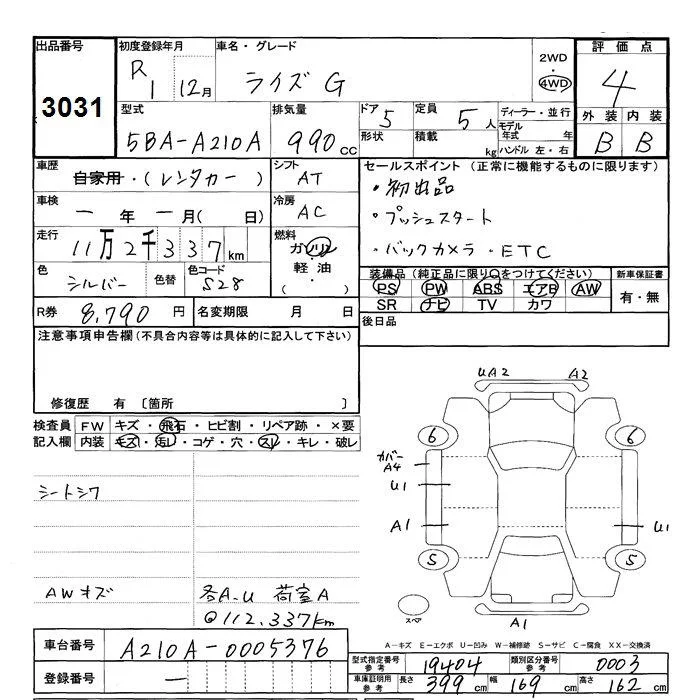 出品番号 初度登録年月 車名・グレード 評価点
3031 R1 12月 ライズ G 2WD 4WD 4
型式 排気量 ドア 定員 ディーラー・並行 外装 内装
5BA-A210A 990cc 5 5人 モデル年式 年 B B
形状 積載 kg ハンドル 左・右
車歴 シフト セールスポイント (正常に機能するものに限ります)
自家用・(レンタカー) AT ・初出品
車検 冷房 ・プッシュスタート
一年一月( 日) AC ・バックカメラ・ETC
走行 燃料
11万2千337km ガソリン
軽油
・( )
色 色替 色コード 装備品(純正品に限り○をつけてください) 新車保証書
シルバー S28 PS PW ABS エアB AW 有・無
SR ナビ TV カワ
R券 8,790円 名変期限 月 日 後日品
注意事項申告欄(不具合内容等は具体的に記入して下さい)
修復歴 有〔箇所 〕
検査員 FW キズ・飛石・ヒビ割・リペア跡・×要
記入欄 内装 キズ・汚レ・コゲ・穴・スレ・キレ・破レ
シートシワ
AWキズ 各A.U 荷室A
@112.337km
UA2 A2
6 6
カバーA4
U1
A1 U1
5 5
スペア
A1
A-キズ E-エクボ U-凹み W-補修跡 S-サビ C-腐食 XX-交換済
車台番号 A210A-0005376
型式指定番号 参考 19404 類別区分番号 参考 0003
登録番号 一
車庫証明用 参考 長さ 399cm 幅 169cm 高さ 162cm